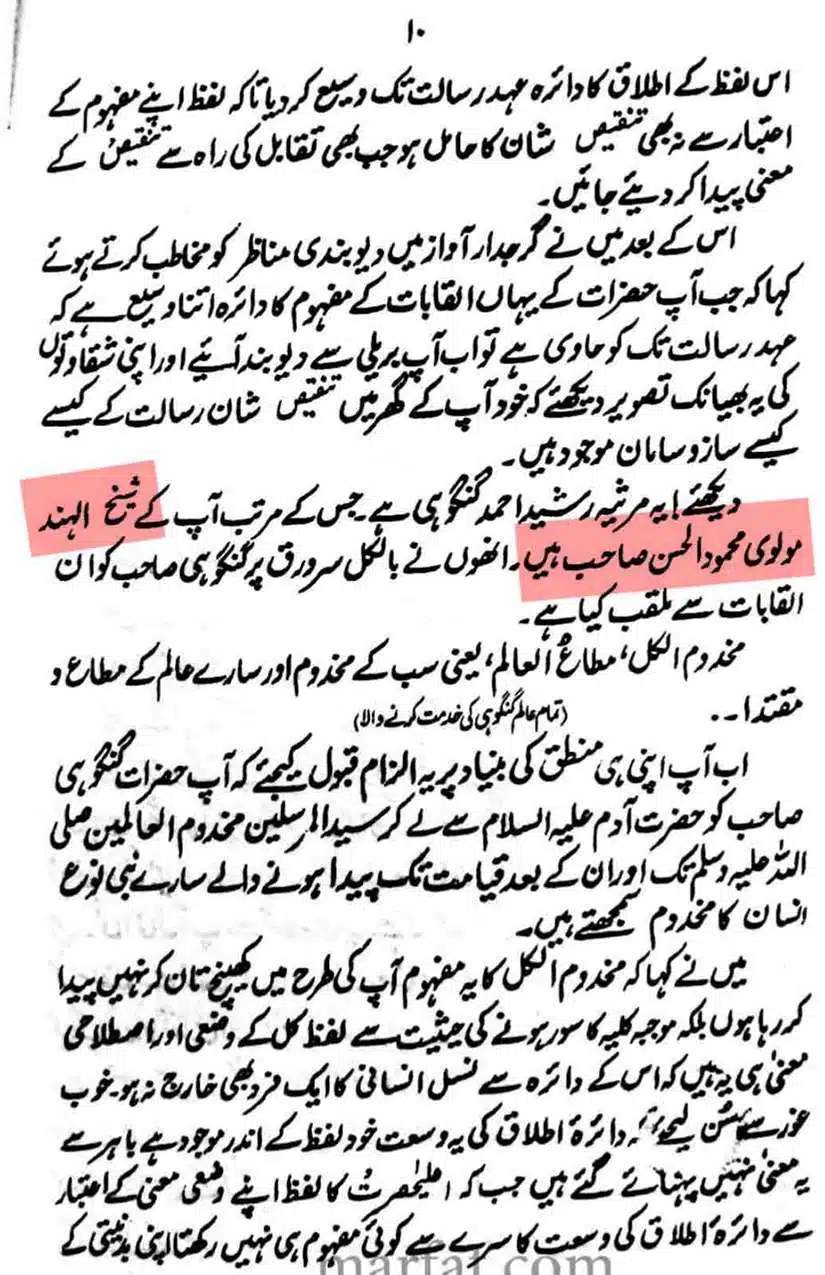 ۱۰
اس لفظ کے اطلاق کا دائرہ عہد رسالت تک وسیع کر دیا تاکہ لفظ اپنے مفہوم کے
اعتبار سے نہ بھی تنقیص شان کا حامل ہو جب بھی تقابل کی راہ سے تنقیص کے
معنی پیدا کر دیئے جائیں۔
اس کے بعد میں نے گرجدار آواز میں دیوبندی مناظر کو مخاطب کرتے ہوئے
کہا کہ جب آپ حضرات کے یہاں القابات کے مفہوم کا دائرہ اتنا وسیع ہے کہ
عہد رسالت تک کو حاوی ہے تو اب آپ بریلی سے دیوبند آئیے اور اپنی شقاوتوں
کی یہ بھیانک تصویر دیکھئے کہ خود آپ کے گھر میں تنقیص شان رسالت کے کیسے
کیسے ساز و سامان موجود ہیں۔
دیکھئے! یہ مرثیہ رشید احمد گنگوہی ہے۔ جس کے مرتب آپ کے شیخ الہند
مولوی محمود الحسن صاحب ہیں۔ انھوں نے بالکل سرورق پر گنگوہی صاحب کو ان
القابات سے ملقب کیا ہے۔
مخدوم الکل، مطاع العالم، یعنی سب کے مخدوم اور سارے عالم کے مطاع و
مقتدا۔۔ (تمام عالم گنگوہی کی خدمت کرنے والا)
اب آپ اپنی ہی منطق کی بنیاد پر یہ الزام قبول کیجئے کہ آپ حضرات گنگوہی
صاحب کو حضرت آدم علیہ السلام سے لے کر سید المرسلین مخدوم العالمین صلی
اللہ علیہ وسلم تک اور ان کے بعد قیامت تک پیدا ہونے والے سارے بنی نوع
انسان کا مخدوم سمجھتے ہیں۔
میں نے کہا کہ مخدوم الکل کا یہ مفہوم آپ کی طرح میں کھینچ تان کر نہیں پیدا
کر رہا ہوں بلکہ موجبہ کلیہ کا سور ہونے کی حیثیت سے لفظ کل کے وضعی اور اصطلاحی
معنیٰ ہی یہ ہیں کہ اس کے دائرہ سے نسل انسانی کا ایک فرد بھی خارج نہ ہو۔ خوب
غور سے سُن لیجئے کہ دائرۂ اطلاق کی یہ وسعت خود لفظ کے اندر موجود ہے باہر سے
یہ معنیٰ نہیں پہنائے گئے ہیں جب کہ اعلیٰحضرت کا لفظ اپنے وضعی معنی کے اعتبار
سے دائرۂ اطلاق کی وسعت کا سرے سے کوئی مفہوم ہی نہیں رکھتا اپنی بدنیتی کے
marfat.com